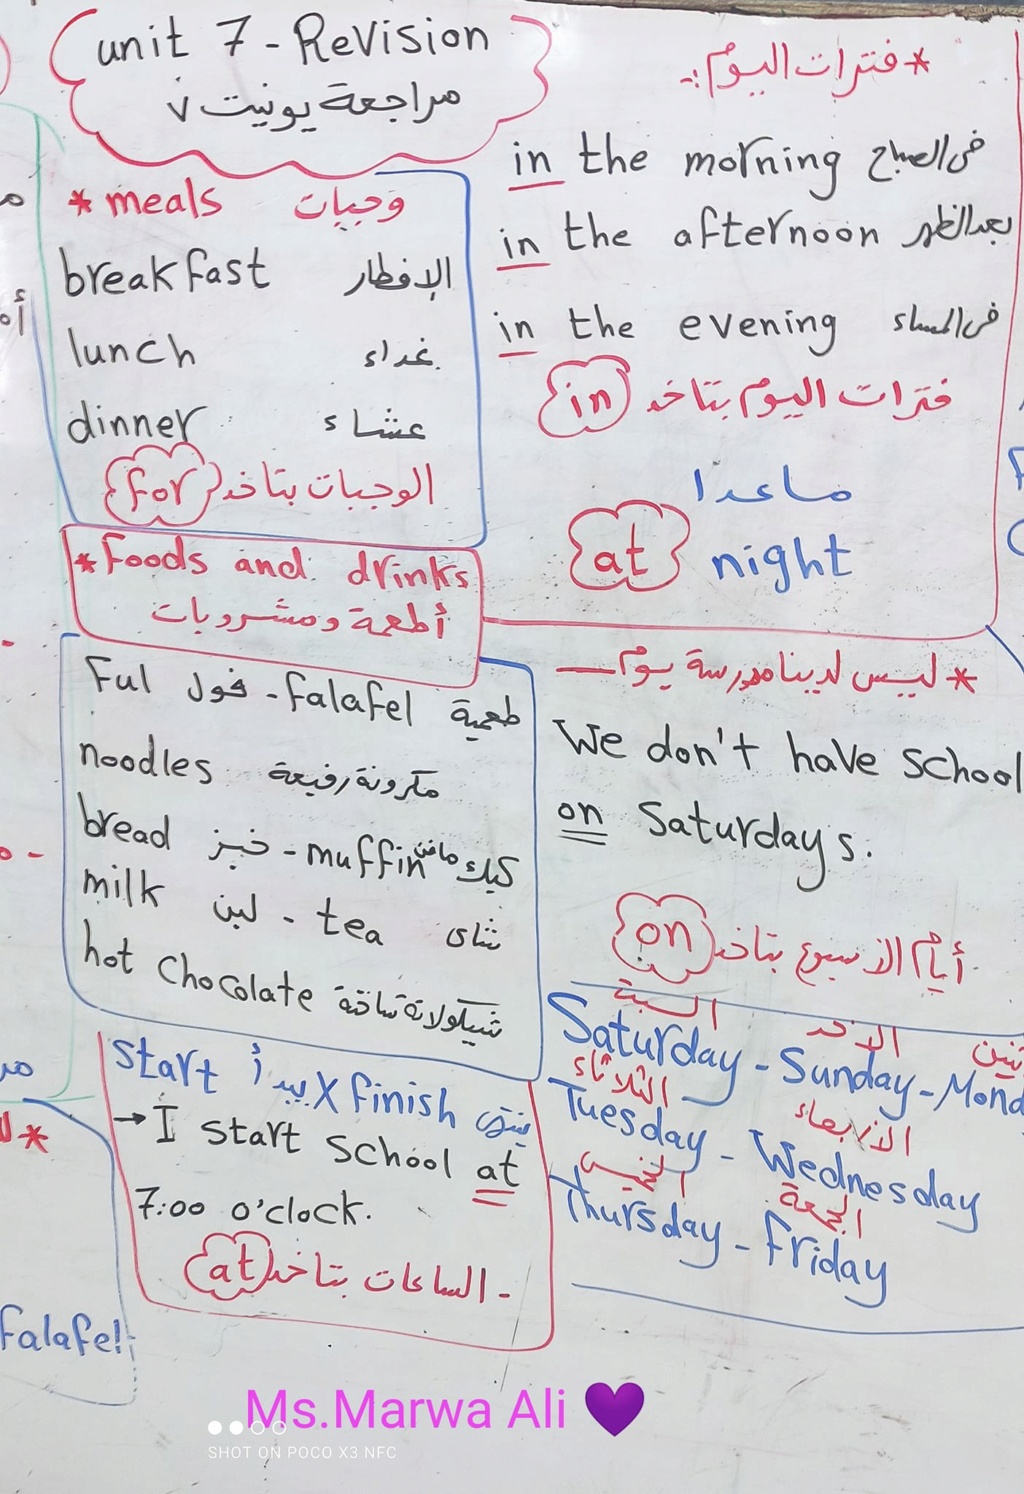 unit 7 - Revision
مراجعة يونيت ٧
* meals وجبات
breakfast الإفطار
lunch غداء
dinner عشاء
الوجبات بتاخد for
* فترات اليوم :-
in the morning فى الصباح
in the afternoon بعد الظهر
in the evening فى المساء
فترات اليوم بتاخد in
ماعدا
at night
* Foods and drinks
أطعمة ومشروبات
Ful فول - falafel طعمية
noodles مكرونة رفيعة
bread خبز - muffin كيك مافن
milk لبن - tea شاى
hot chocolate شيكولاتة ساخنة
* ليس لدينا مدرسة يوم —
We don't have school
on Saturdays.
أيام الأسبوع بتاخد on
السبت الأحد
Saturday - Sunday - Mond
الثلاثاء الأربعاء
Tuesday - Wednesday
الخميس الجمعة
Thursday - Friday
start يبدأ X finish ينتهى
→ I start school at
7:00 o'clock.
- الساعات بتاخد at
falafel
Ms.Marwa Ali 💜
SHOT ON POCO X3 NFC